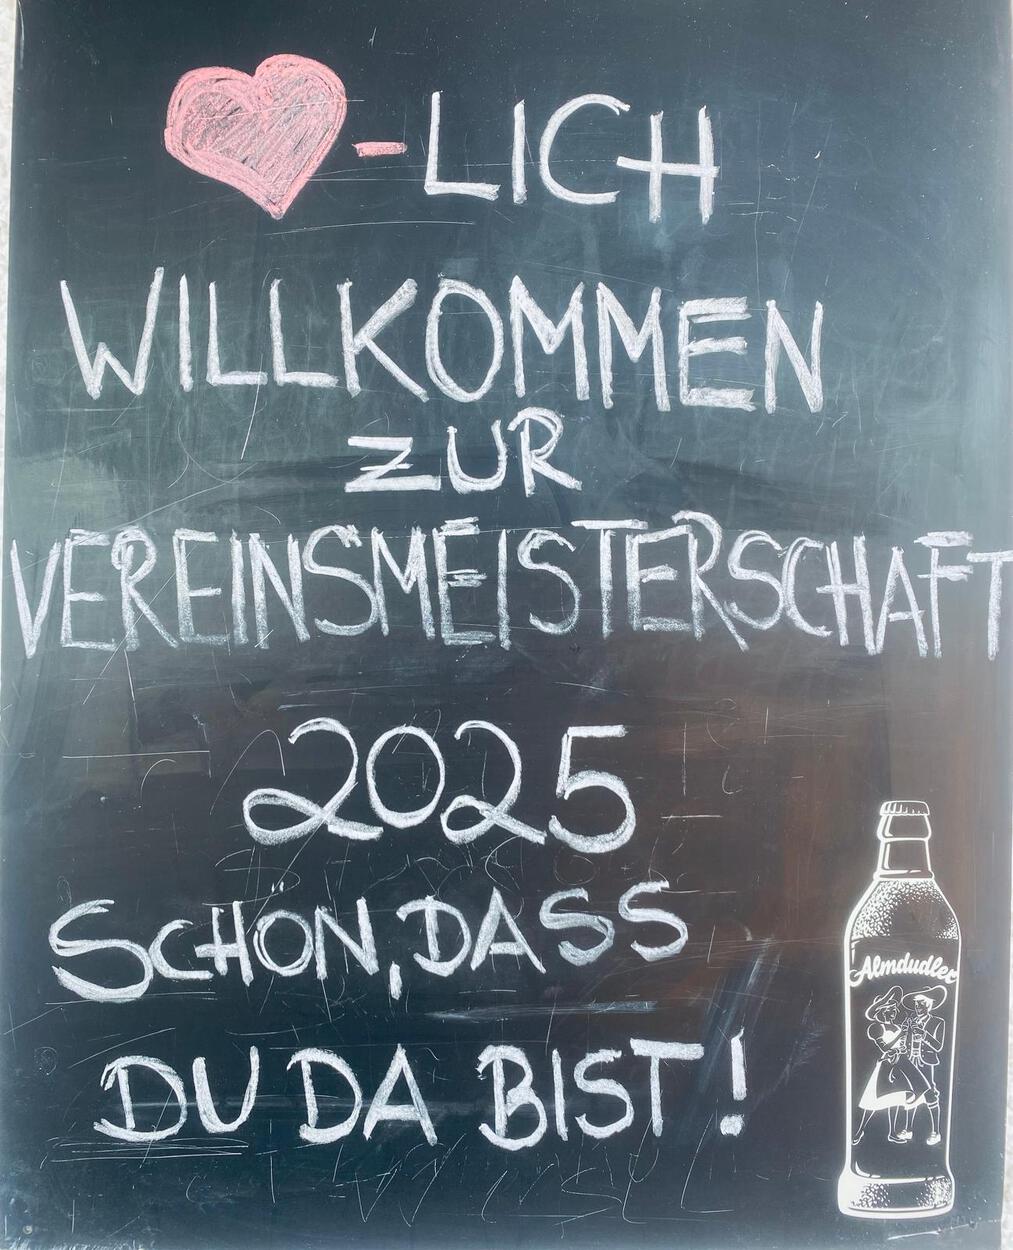 -LICH
WILLKOMMEN
ZUR
VEREINSMEISTERSCHAFT
2025
SCHÖN, DASS
DU DA BIST!
Almdudler